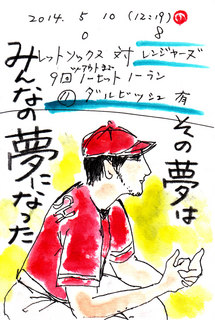 2014. 5. 10 (12:19)
0 8
レットソックス 対 レンジャーズ
ツーアウトまで
9回 1-ヒット 1-ラン
の ダルビッシュ 有
その夢は
みんなの夢になった